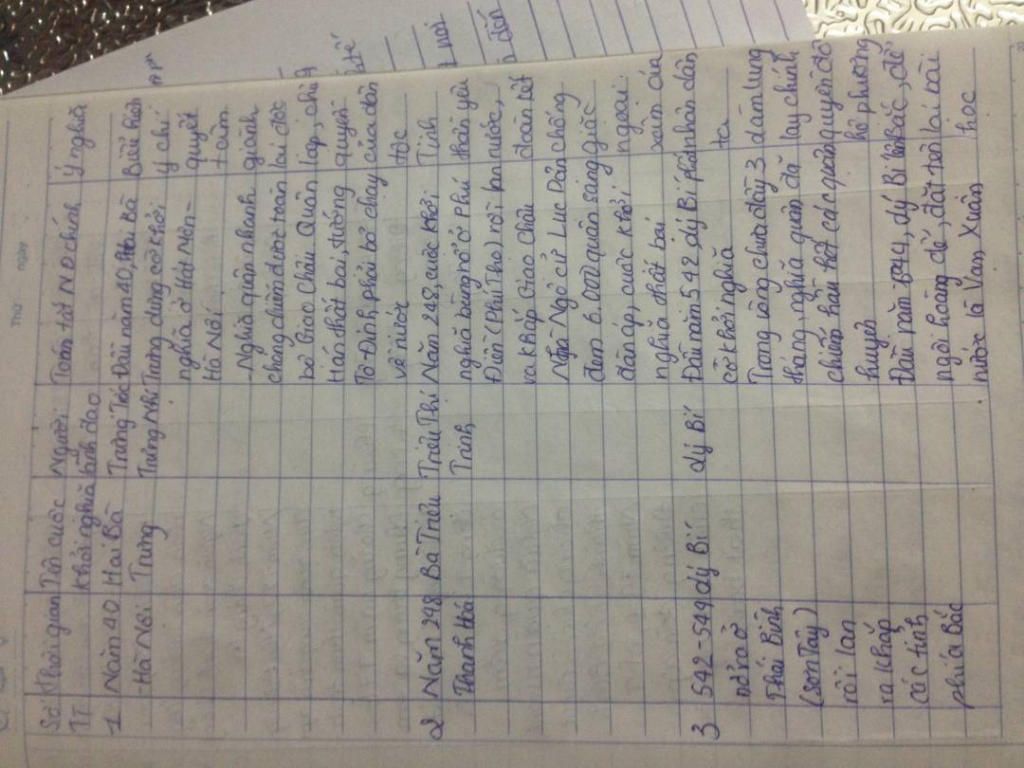 Thứ ngày
Số TT
Thời gian
Tên cuộc khởi nghĩa
Người lãnh đạo
Tóm tắt ND chính
Ý nghĩa
1
Năm 40
-Hà Nội
Hai Bà
Trưng
Trưng Trắc
Trưng Nhị
Đầu năm 40, Hai Bà
Trưng dựng cờ khởi
nghĩa ở Hát Môn-
Hà Nội.
-Nghĩa quân nhanh
chóng chiếm được toàn
bộ Giao Châu. Quân
Hán thất bại, tướng
Tô Định phải bỏ chạy
về nước
Biểu hiện
ý chí
quyết
tâm
giành
lại độc
lập, chủ
quyền
của dân
tộc
2
Năm 248
Thanh Hoá
Bà Triệu
Triệu Thị
Trinh
Năm 248, cuộc khởi
nghĩa bùng nổ ở Phú
Điền (Phú Thọ) rồi lan
ra khắp Giao Châu
Ngô cử Lục Dận
đem 6.000 quân sang
đàn áp, cuộc khởi
nghĩa thất bại
Tinh
thần yêu
nước,
đoàn kết
chống
giặc
ngoại
xâm của
nhân dân
ta
3
542-544
nổ ra ở
Thái Bình
(Sơn Tây)
rồi lan
ra khắp
các tỉnh
phía Bắc
Lý Bí
Lý Bí
Đầu năm 542 Lý Bí phất
cờ khởi nghĩa
Trong vòng chưa đầy 3
tháng, nghĩa quân đã
chiếm hầu hết các quận
huyện
Đầu năm 544, Lý Bí lên
ngôi hoàng đế, đặt tên
nước là Vạn Xuân
làm lung
lay chính
quyền đô
hộ phương
Bắc, để
lại bài
học